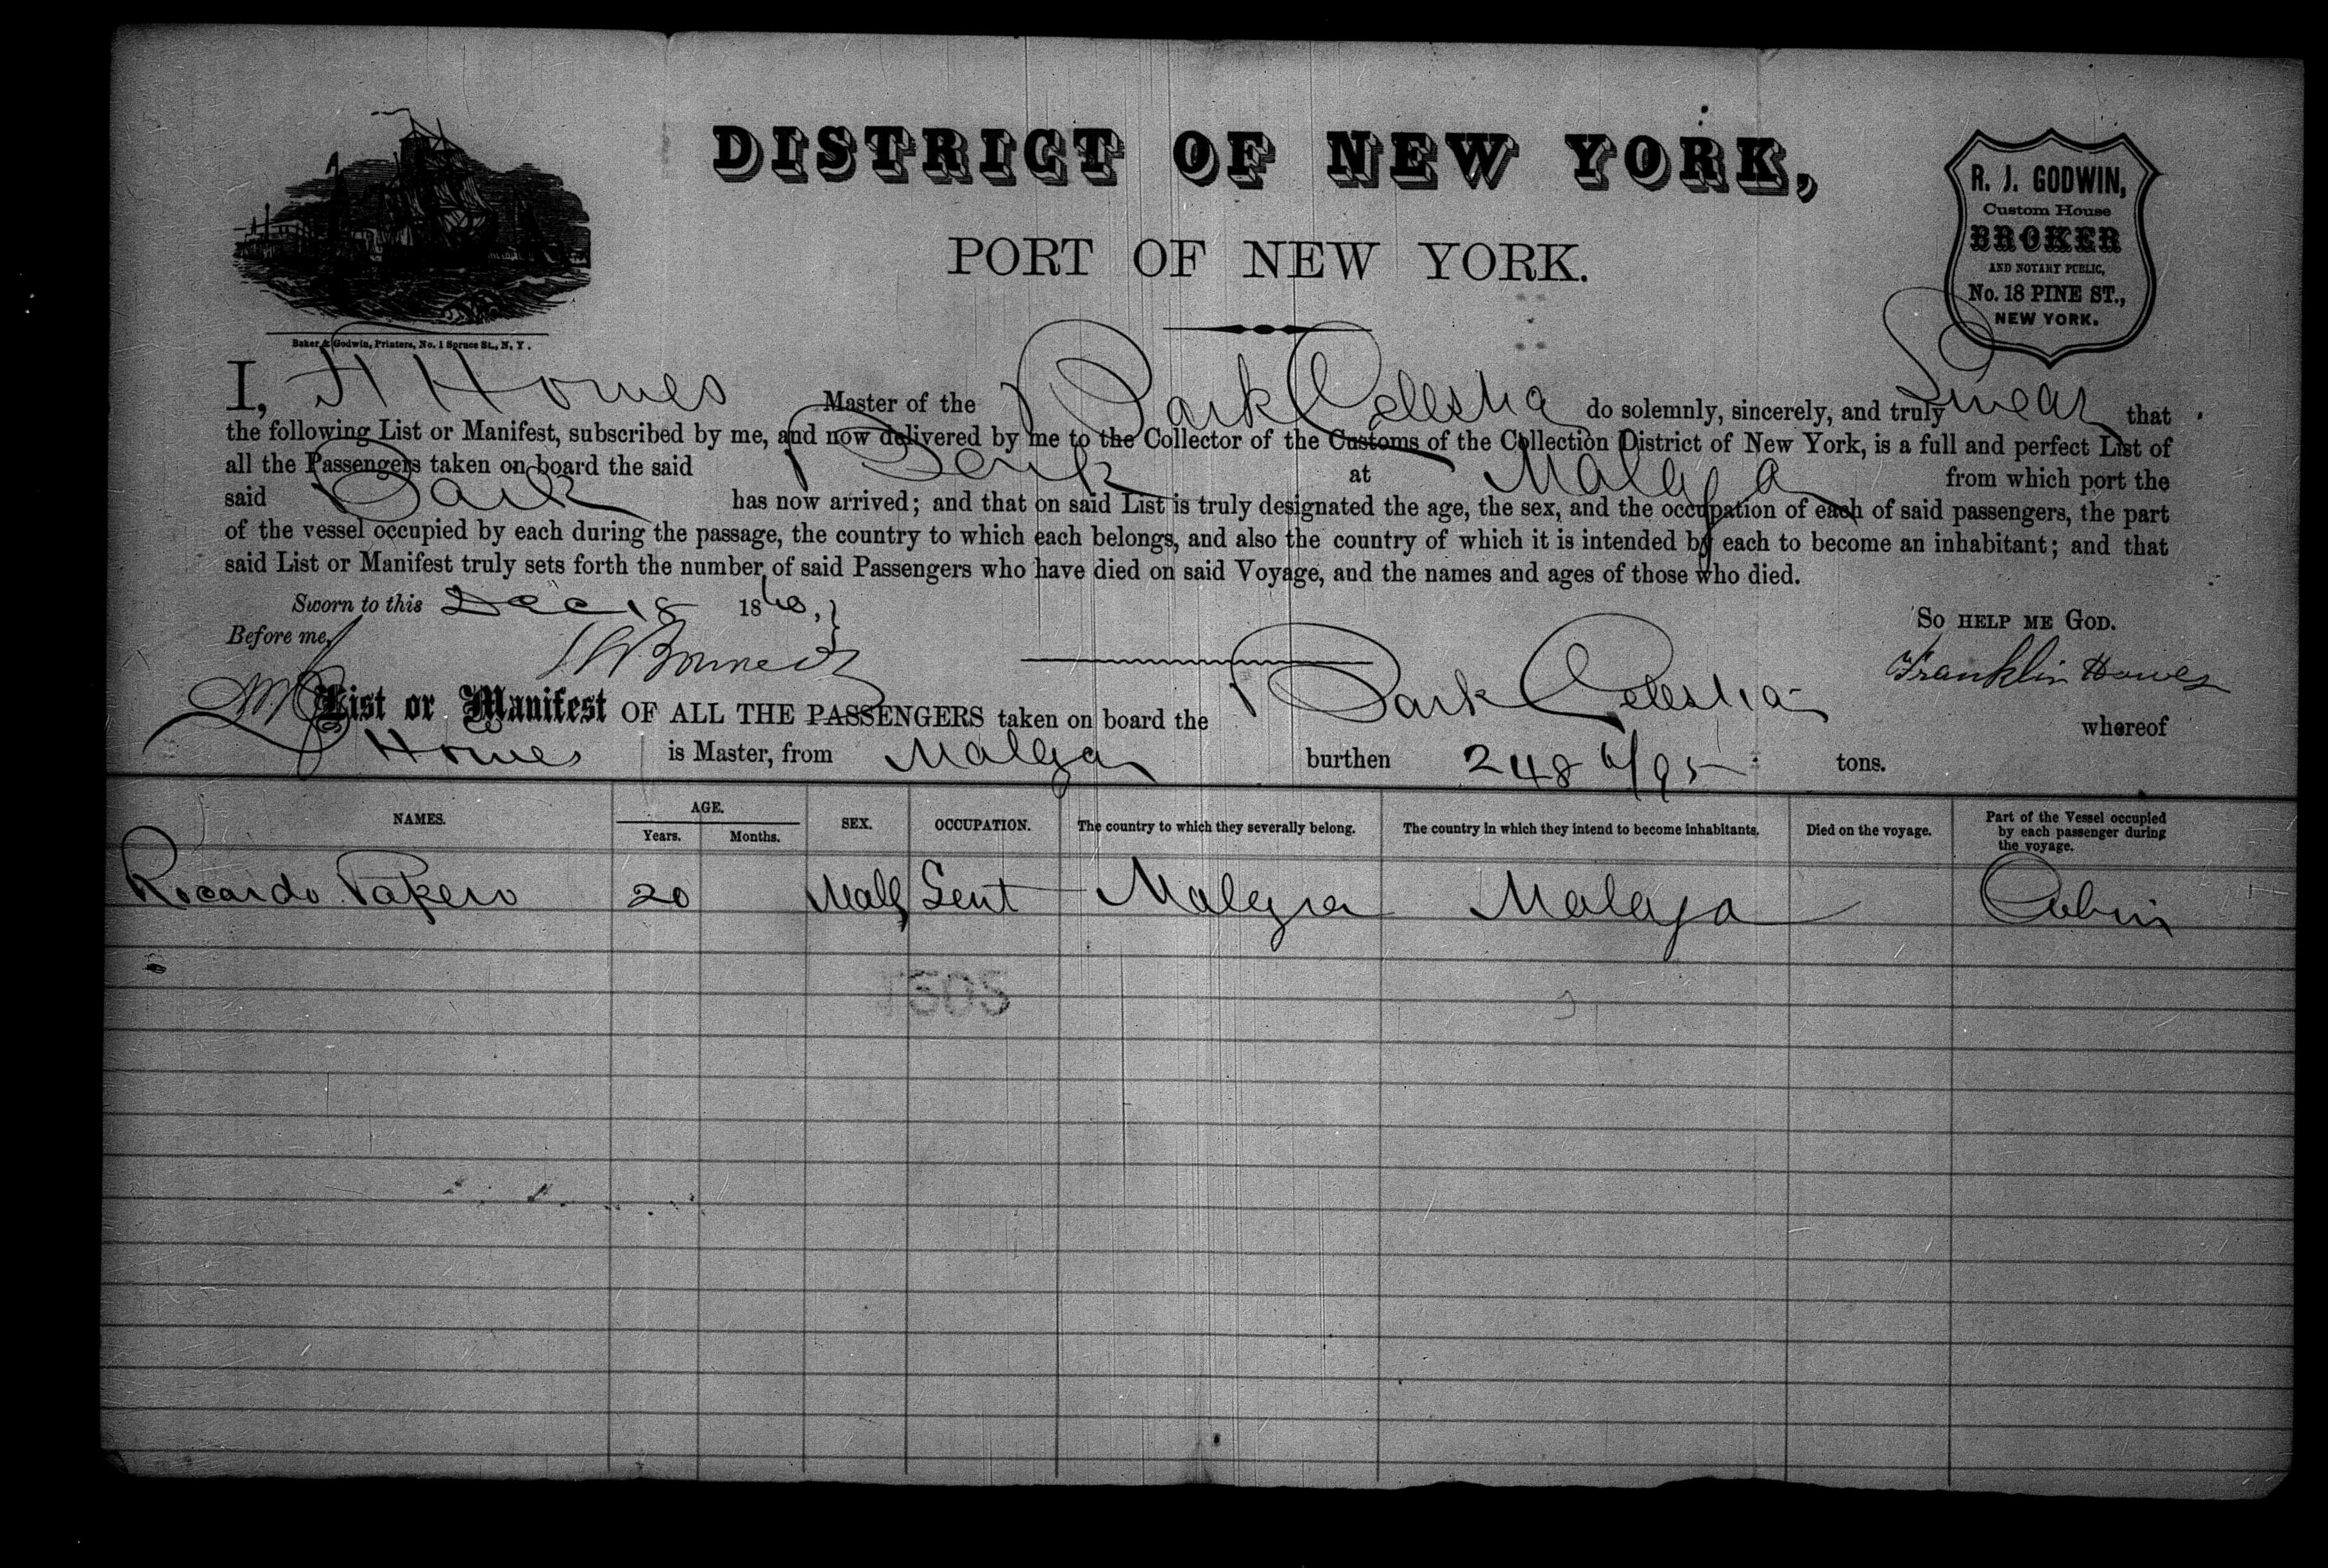 DISTRICT OF NEW YORK,
PORT OF NEW YORK.
R. J. GODWIN,
Custom House
BROKER
AND NOTARY PUBLIC,
No. 18 PINE ST.,
NEW YORK.
Baker & Godwin, Printers, No. 1 Spruce St., N. Y.
I, F Howes Master of the Bark Celestia do solemnly, sincerely, and truly Swear that
the following List or Manifest, subscribed by me, and now delivered by me to the Collector of the Customs of the Collection District of New York, is a full and perfect List of
all the Passengers taken on board the said Bark at Malaga from which port the
said Bark has now arrived; and that on said List is truly designated the age, the sex, and the occupation of each of said passengers, the part
of the vessel occupied by each during the passage, the country to which each belongs, and also the country of which it is intended by each to become an inhabitant; and that
said List or Manifest truly sets forth the number of said Passengers who have died on said Voyage, and the names and ages of those who died.
Sworn to this Dec 18 1860,
So HELP ME GOD.
Before me,
Franklin Howes
List or Manifest OF ALL THE PASSENGERS taken on board the Bark Celestia whereof
Howes is Master, from Malaga burthen 248 6/95 tons.
NAMES. AGE. Years. Months. SEX. OCCUPATION. The country to which they severally belong. The country in which they intend to become inhabitants. Died on the voyage. Part of the Vessel occupied by each passenger during the voyage.
Ricardo 20 Male Gent Malaga Malaga Cabin